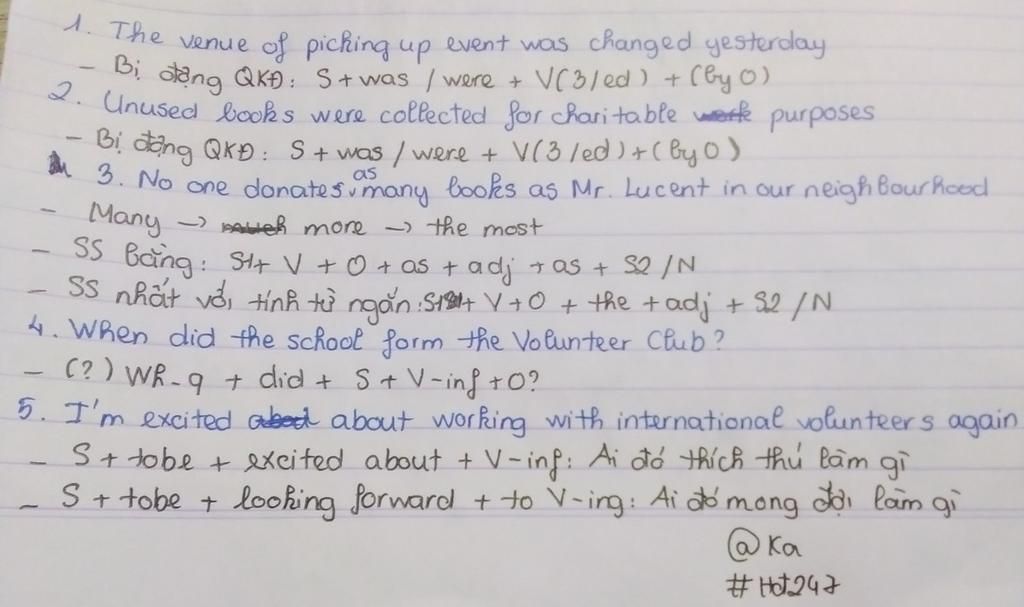 1. The venue of picking up event was changed yesterday
- Bị động QKĐ: S + was / were + V(3/ed) + (by O)
2. Unused books were collected for charitable work purposes
- Bị động QKĐ: S + was / were + V(3/ed) + (by O)
3. No one donates as many books as Mr. Lucent in our neighbourhood
- Many → much more → the most
- SS bằng: S1 + V + O + as + adj + as + S2 / N
- SS nhất với tính từ ngắn: S1 + V + O + the + adj + S2 / N
4. When did the school form the Volunteer Club?
- (?) Wh-q + did + S + V-inf + O?
5. I'm excited about working with international volunteers again
- S + tobe + excited about + V-inf: Ai đó thích thú làm gì
- S + tobe + looking forward + to V-ing: Ai đó mong đợi làm gì
@Ka
#Hot247